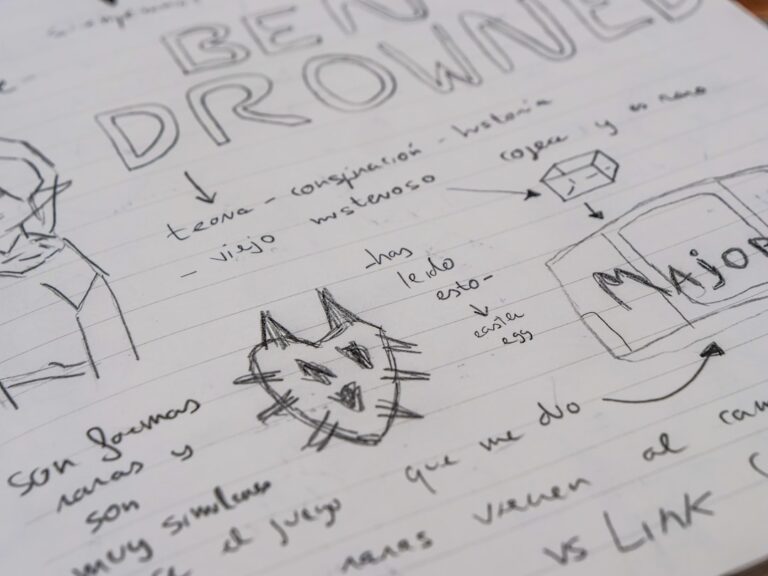 BEN
DROWNED
teoria - conspiración - historia
- viejo misterioso
cogera y es raro
-has
leido
esto-
easter
egg
MAJOR
son formas
raras y
son
muy similares
el juego
que me dio
raras vienen al
vs Link